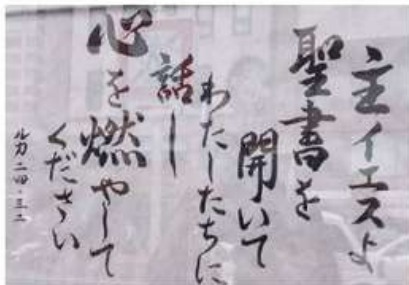 主イエスよ
聖書を
開いて
わたしたちに
話し
心を燃やして
ください
ルカ二四・三二